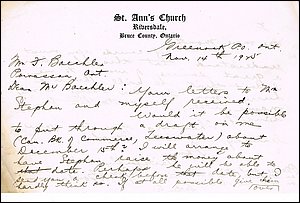 St. Ann's Church
Riversdale,
Bruce County, Ontario
Greenock P.O. Ont.
Nov. 14th 1925
Mr I. Baechler
Powassan Ont
Dear Mr Baechler: Your letters to Mr
Stephan and myself received.
Would it be possible
to put through a draft on me
(Can. Bk. of Commerce, Teeswater) about
December 15th? I will arrange to
have Stephan raise the money about
that date. Perhaps he will be able to
send you a check before that date, but I
hardly think so. If at all possible give him
(over)